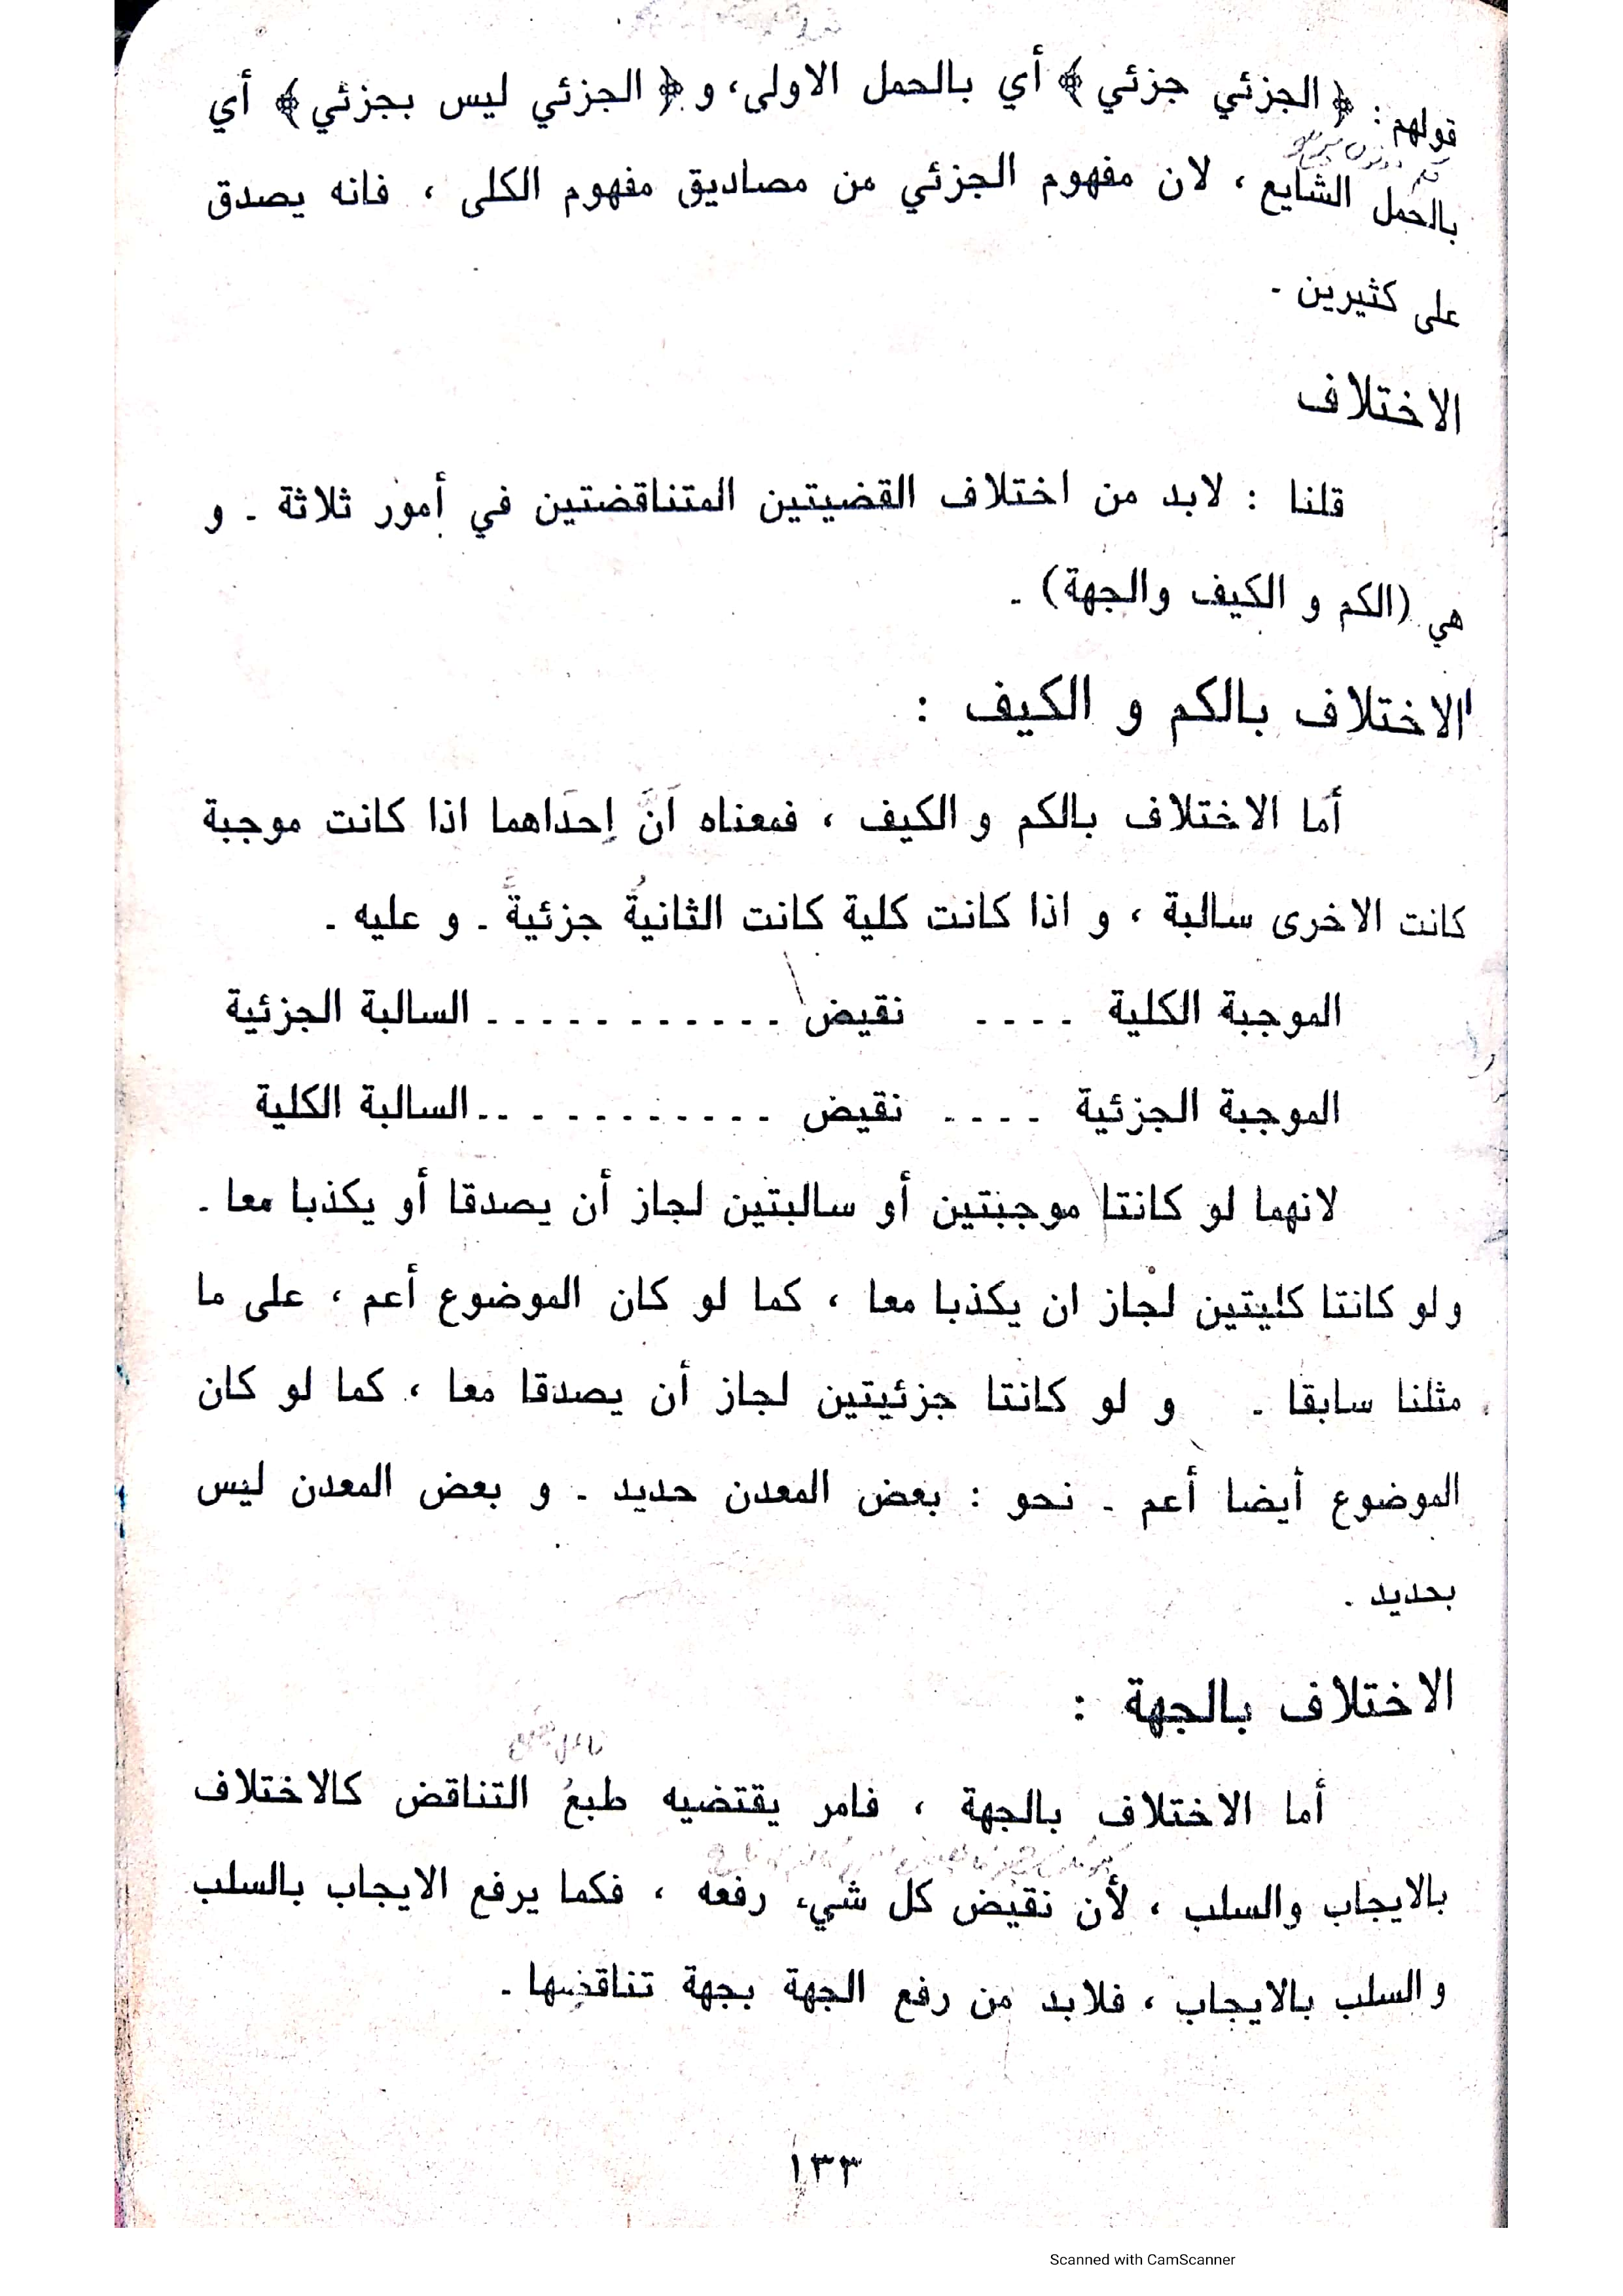 قولهم : ﴿الجزئي جزئي﴾ أي بالحمل الاولى، و ﴿الجزئي ليس بجزئي﴾ أي
بالحمل الشايع ، لان مفهوم الجزئي من مصاديق مفهوم الكلى ، فانه يصدق
على كثيرين -
الاختلاف
قلنا : لابد من اختلاف القضيتين المتناقضتين في أمور ثلاثة - و
هي (الكم و الكيف والجهة) -
الاختلاف بالكم و الكيف :
أما الاختلاف بالكم و الكيف ، فمعناه اَنَّ إحدَاهما اذا كانت موجبة
كانت الاخرى سالبة ، و اذا كانت كلية كانت الثانيةُ جزئيةً - و عليه -
الموجبة الكلية - - - - نقيض - - - - - - - - - - - السالبة الجزئية
الموجبة الجزئية - - - - نقيض - - - - - - - - - - - السالبة الكلية
لانهما لو كانتا موجبتين أو سالبتين لجاز أن يصدقا أو يكذبا معا -
و لو كانتا كليتين لجاز ان يكذبا معا ، كما لو كان الموضوع أعم ، على ما
مثلنا سابقا - و لو كانتا جزئيتين لجاز أن يصدقا معا ، كما لو كان
الموضوع أيضا أعم - نحو : بعض المعدن حديد - و بعض المعدن ليس
بحديد -
الاختلاف بالجهة :
أما الاختلاف بالجهة ، فامر يقتضيه طبعُ التناقض كالاختلاف
بالايجاب والسلب ، لأن نقيض كل شيء رفعه ، فكما يرفع الايجاب بالسلب
و السلب بالايجاب ، فلابد من رفع الجهة بجهة تناقضها -
١٣٣
Scanned with CamScanner